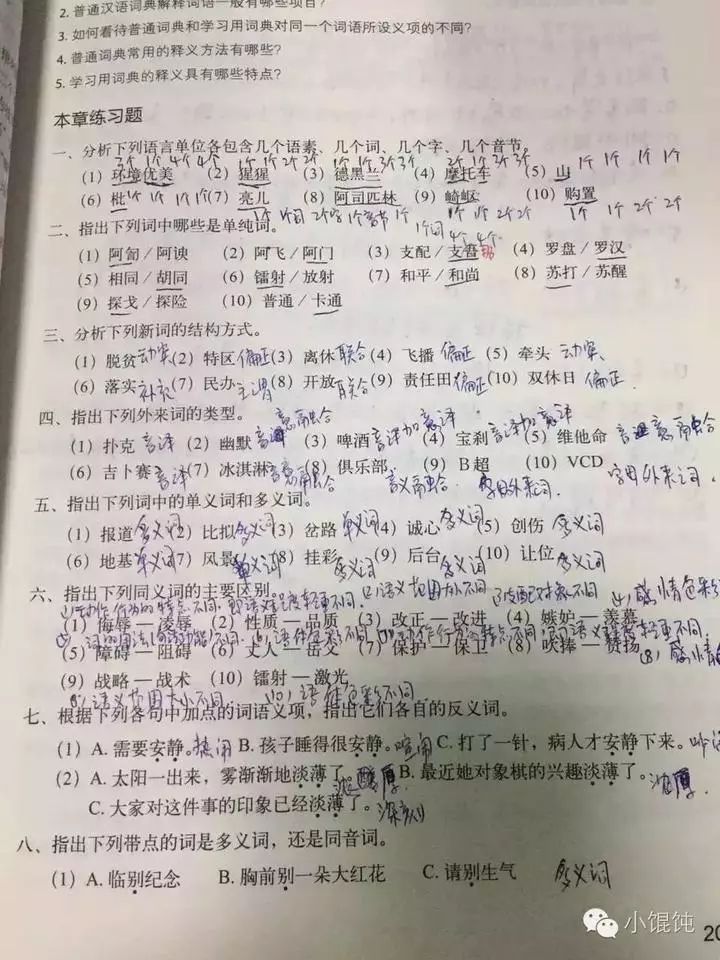 2. 普通汉语词典解释词语一般有哪些项目？
3. 如何看待普通词典和学习用词典对同一个词语所设义项的不同？
4. 普通词典常用的释义方法有哪些？
5. 学习用词典的释义具有哪些特点？
本章练习题
一、分析下列语言单位各包含几个语素、几个词、几个字、几个音节。
3个 1个 4个 4个 1个 1个 2个 2个 1个 1个 3个 3个 2个 1个 3个 3个 1个 1个 1个 1个
(1) 环境优美 (2) 猩猩 (3) 德黑兰 (4) 摩托车 (5) 山
(6) 枇 (7) 亮儿 (8) 阿司匹林 (9) 崎岖 (10) 购置
二、指出下列词中哪些是单纯词。
(1) 阿訇／阿谀 (2) 阿飞／阿门 (3) 支配／支吾 (4) 罗盘／罗汉
(5) 相同／胡同 (6) 镭射／放射 (7) 和平／和尚 (8) 苏打／苏醒
(9) 探戈／探险 (10) 普通／卡通
三、分析下列新词的结构方式。
(1) 脱贫 动宾 (2) 特区 偏正 (3) 离休 联合 (4) 飞播 偏正 (5) 牵头 动宾
(6) 落实 补充 (7) 民办 主谓 (8) 开放 联合 (9) 责任田 偏正 (10) 双休日 偏正
四、指出下列外来词的类型。
(1) 扑克 音译 (2) 幽默 音意融合 (3) 啤酒 音译加意译 (4) 宝刹 音译加意译 (5) 维他命 音意融合
(6) 吉卜赛 音译 (7) 冰淇淋 音意融合 (8) 俱乐部 音义融合 (9) B超 字母外来词 (10) VCD 字母外来词
五、指出下列词中的单义词和多义词。
(1) 报道 多义词 (2) 比拟 多义词 (3) 岔路 单义词 (4) 诚心 多义词 (5) 创伤 多义词
(6) 地基 单义词 (7) 风景 单义词 (8) 挂彩 多义词 (9) 后台 多义词 (10) 让位 多义词
六、指出下列同义词的主要区别。
(1) 侮辱—凌辱 (2) 性质—品质 (3) 改正—改进 (4) 嫉妒—羡慕
(5) 障碍—阻碍 (6) 丈人—岳父 (7) 保护—保卫 (8) 吹捧—赞扬
(9) 战略—战术 (10) 镭射—激光
(9) 语义范围大小不同 (10) 语体色彩不同
七、根据下列各句中加点的词语义项，指出它们各自的反义词。
(1) A. 需要安静。热闹 B. 孩子睡得很安静。喧闹 C. 打了一针，病人才安静下来。
(2) A. 太阳一出来，雾渐渐地淡薄了。浓厚 B. 最近她对象棋的兴趣淡薄了。浓厚
C. 大家对这件事的印象已经淡薄了。深刻
八、指出下列带点的词是多义词，还是同音词。
(1) A. 临别纪念 B. 胸前别一朵大红花 C. 请别生气 多义词
小馄饨
20